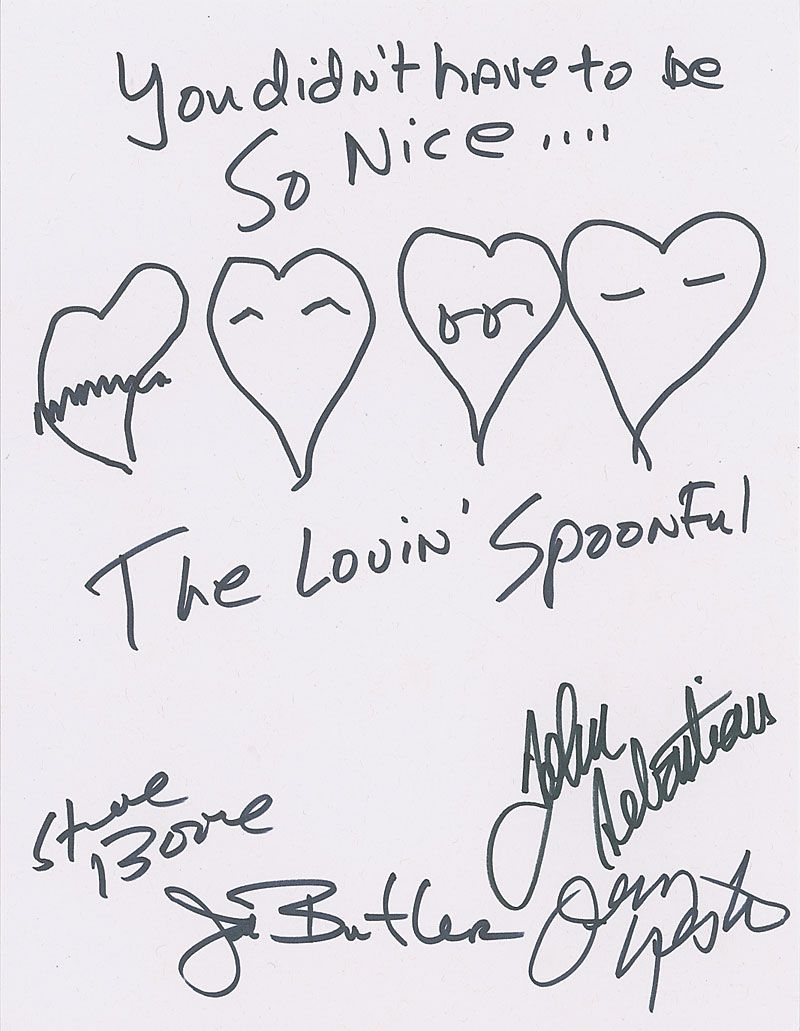 You didn't have to be
So Nice....
The Lovin' Spoonful
John
Sebastian
Steve
Boone
Joe Butler
Jerry
Yester